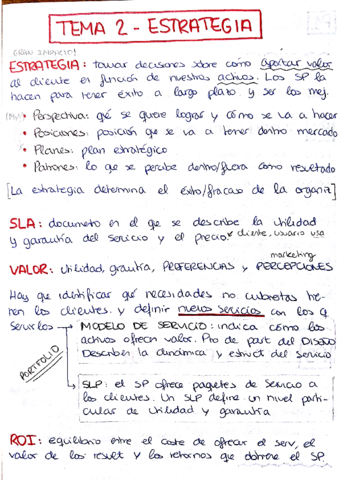 TEMA 2 - ESTRATEGIA
GRAN IMPACTO!
ESTRATEGIA: tomar decisiones sobre como aportar valor
al cliente en función de nuestros activos. Los SP la
hacen para tener éxito a largo plazo y ser los mej.
• Perspectiva: qé se quiere lograr y cómo se va a hacer
• Posiciones: posición qe se va a tener dentro mercado
• Planes: plan estratégico
• Patrones: lo qe se percibe dentro/fuera como resultado
[La estrategia determina el éxito/fracaso de la organiz]
SLA: documento en el qe se describe la utilidad
y garantía del servicio y el precio. cliente, usuario usa
marketing
VALOR: utilidad, grantía, PREFERENCIAS y PERCEPCIONES
Hay qe identificar qé necesidades no cubiertas tie-
nen los clientes. y definir nuevos servicios con los q
servirlos
MODELO DE SERVICIO: indica cómo los
activos ofrecen valor. Pro de part del Diseño
Describen la dinámica y estruct del servicio
PORTFOLIO
SLP: el SP ofrece paqetes de servicio a
los clientes. Un SLP define un nivel parti-
cular de utilidad y garantía
ROI: equilibrio entre el coste de ofrecer el serv, el
valor de los result y los retornos que obtiene el SP.